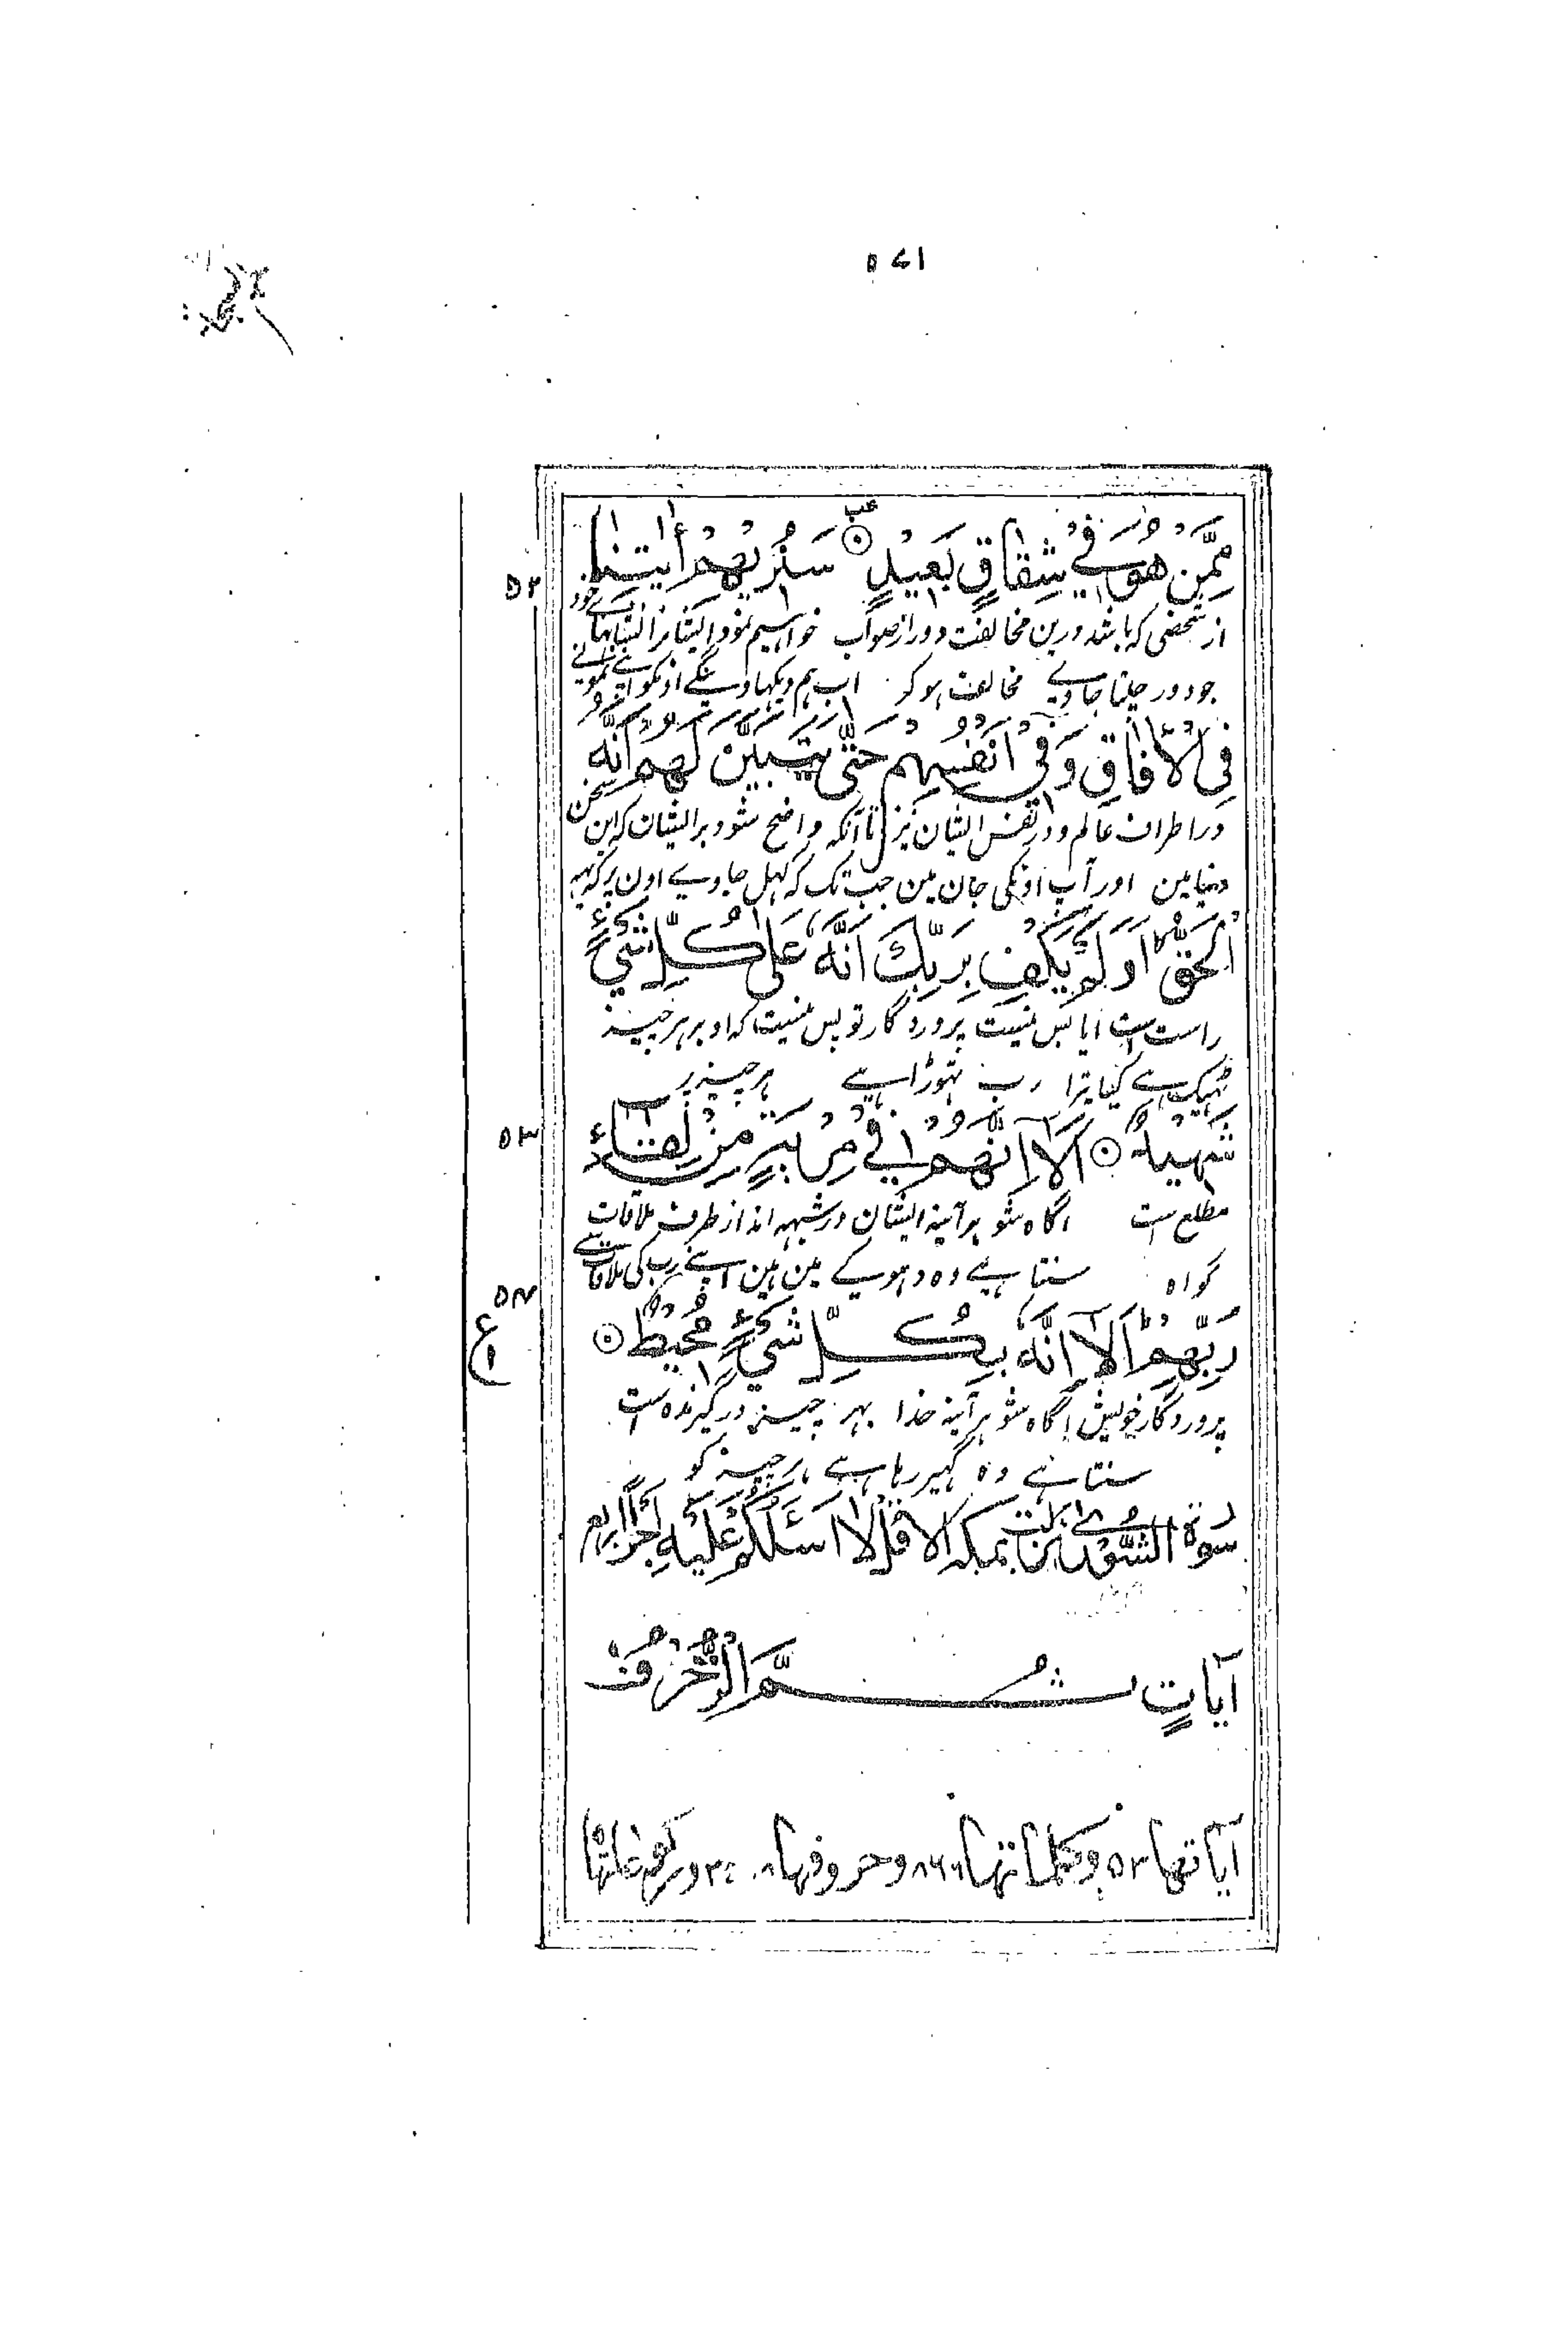 ۵۷۱
مِمَّنْ هُوَ فِي شِقَاقٍ بَعِيْدٍ ۞ سَنُرِيْهِمْ اٰيٰتِنَا
۵۲
از شخصی که باشد درین مخالفت دور از صواب خواهیم نمود ایشانرا نشانهای خود
جو دور چلتا جاوے مخالفت ہو کر اب ہم دیکھاوینگے اونکو اپنے نمونے
فِي الْاٰفَاقِ وَفِيْ اَنْفُسِهِمْ حَتّٰى يَتَبَيَّنَ لَهُمْ اَنَّهُ
در اطراف عالم و در نفس ایشان نیز تا آنکه واضح شود بر ایشان که این سخن
دنیا مین اور آپ اونکی جان مین جب تک کہ کھل جاوے اون پر کہ یہہ
الْحَقُّ اَوَلَمْ يَكْفِ بِرَبِّكَ اَنَّهُ عَلٰى كُلِّ شَيْءٍ
راست است ایا بس نیست پروردگار تو بس نیست که او بر هر چیز
ٹھیک ہے کیا تیرا رب تھوڑا ہے ہر چیز پر
شَهِيْدٌ ۞ اَلَآ اِنَّهُمْ فِيْ مِرْيَةٍ مِنْ لِقَاءِ
۵۳
مطلع است اگاه شو هر آینه ایشان در شبهه اند از طرف ملاقات
گواہ سنتا ہے وہ دہوکے مین ہین اپنے رب کی ملاقات سے
۵۴
رَبِّهِمْ اَلَآ اِنَّهُ بِكُلِّ شَيْءٍ مُحِيْطٌ ۞
ع
پروردگار خویش اگاه شو هر آینه خدا بهر چیز در گیرنده است
سنتا ہے وہ گھیر رہا ہے ہر چیز کو
سُوْرَةُ الشُّوْرٰى نزلت بمكة الا قُلْ لَا اَسْئَلُكُمْ عَلَيْهِ اَجْرًا اربع
آيَاتٍ ثُمَّ الزُّخْرُفُ
آياتها ۵۳ وكلماتها ۸۶۶ وحروفها وركوعاتها